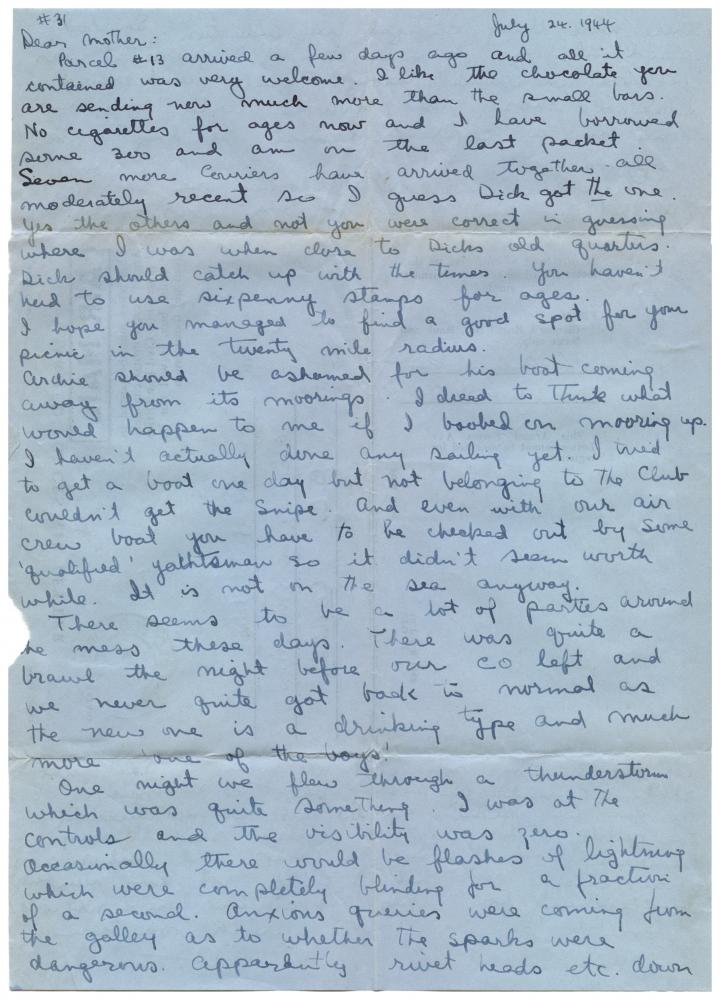 #31
July 24. 1944
Dear Mother:
Parcel #13 arrived a few days ago and all it
contained was very welcome. I like the chocolate you
are sending now much more than the small bars.
No cigarettes for ages now and I have borrowed
some 300 and am on the last packet.
Seven more Couriers have arrived together all
moderately recent so I guess Dick got the one.
Yes the others and not you were correct in guessing
where I was when close to Dicks old quarters.
Dick should catch up with the times. You haven't
had to use sixpenny stamps for ages.
I hope you managed to find a good spot for your
picnic in the twenty mile radius.
Archie should be ashamed for his boat coming
away from its moorings. I dread to think what
would happen to me if I boobed on mooring up.
I haven't actually done any sailing yet. I tried
to get a boat one day but not belonging to The Club
couldn't get the Snipe. And even with our air
crew boat you have to be checked out by some
'qualified' yachtsman so it didn't seem worth
while. It is not on the sea anyway.
There seems to be a lot of parties around
he mess these days. There was quite a
brawl the night before our CO left and
we never quite got back to normal as
the new one is a drinking type and much
more 'one of the boys'.
One night we flew through a thunderstorm
which was quite something. I was at the
controls and the visibility was zero.
Occasionally there would be flashes of lightning
which were completely blinding for a fraction
of a second. Anxious queries were coming from
the galley as to whether the sparks were
dangerous. Apparently rivet heads etc. down